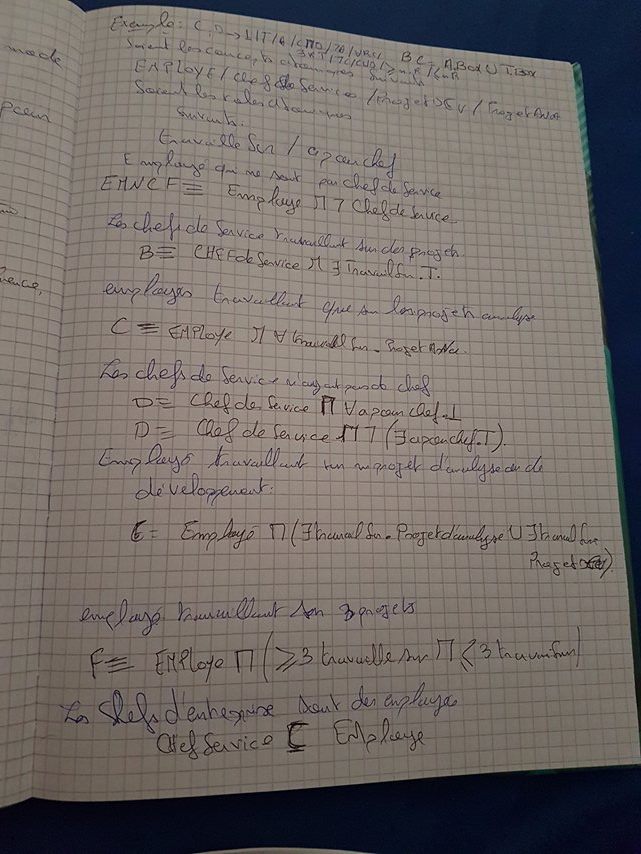 mode
Exemple: C, D → 
BC = A.Box ∪ T.Box
Soient les concepts atomiques suivants
EMPLOYE / Chef de Service / Projet DEV / Projet ANA
Soient les roles atomiques
suivants:
travaille Sur / a pour chef
Employé qui ne sont pas chef de Service
EMNCF ≡ Employe ⊓ ⅂ Chef de Service
Les chefs de Service travaillant sur des projets.
B ≡ CHEF de Service ⊓ ∃ Travail Sur. T.
employes travaillant que sur les projets analyse
C ≡ EMPLOYE ⊓ ∀ travaill Sur. Projet ANA.
Les chefs de Service n'ayant pas de chef
D ≡ Chef de Service ⊓ ∀ a pour chef. ⊥
D ≡ Chef de Service ⊓ ⅂ (∃ a pour chef. T).
Employé travaillant sur un projet d'analyse ou de
développement:
E = Employé ⊓ (∃ travail Sur. Projet d'analyse ∪ ∃ travail Sur
Projet Dev).
employé travaillant sur 3 projets
F ≡ EMPloye ⊓ (⩾ 3 travaille sur ⊓ ⩽ 3 travail sur)
Les Chefs d'entreprise sont des employés
Chef Service ⊏ EMploye